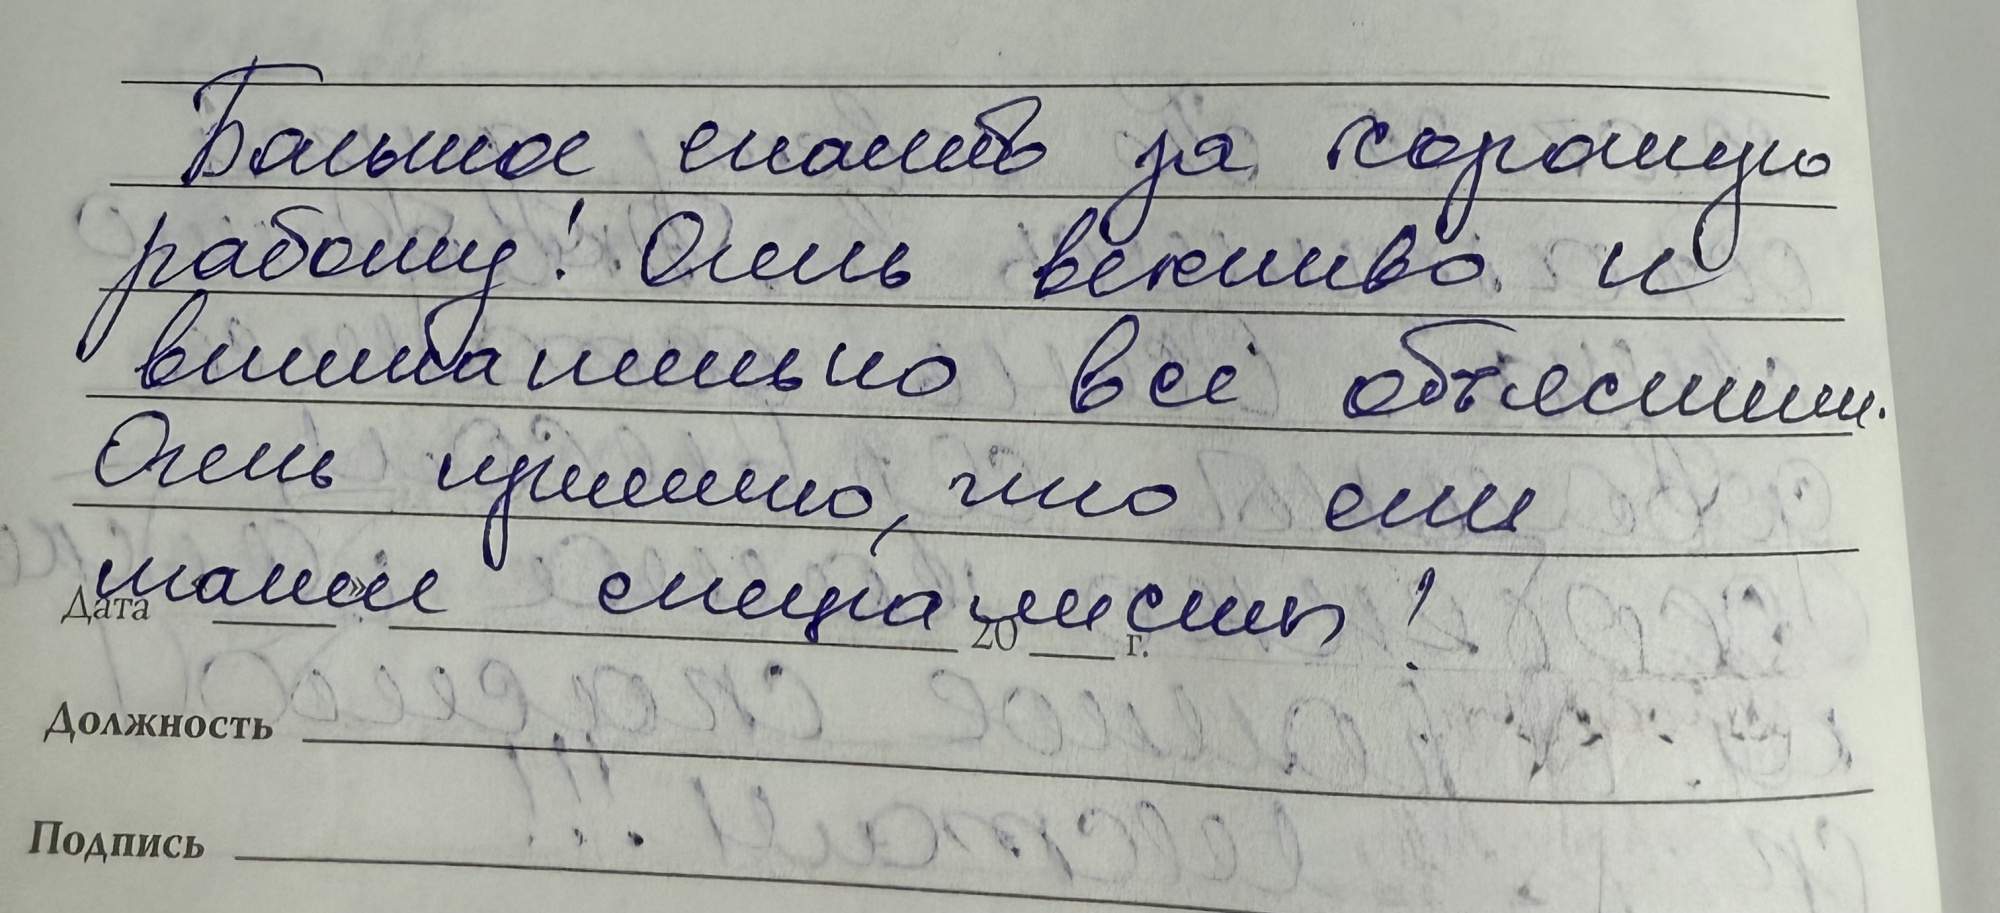 Большое спасибо за хорошую
работу! Очень вежливо и
внимательно всё объяснили.
Очень приятно, что есть
такие специалисты!
Дата » 20 г.
Должность
Подпись